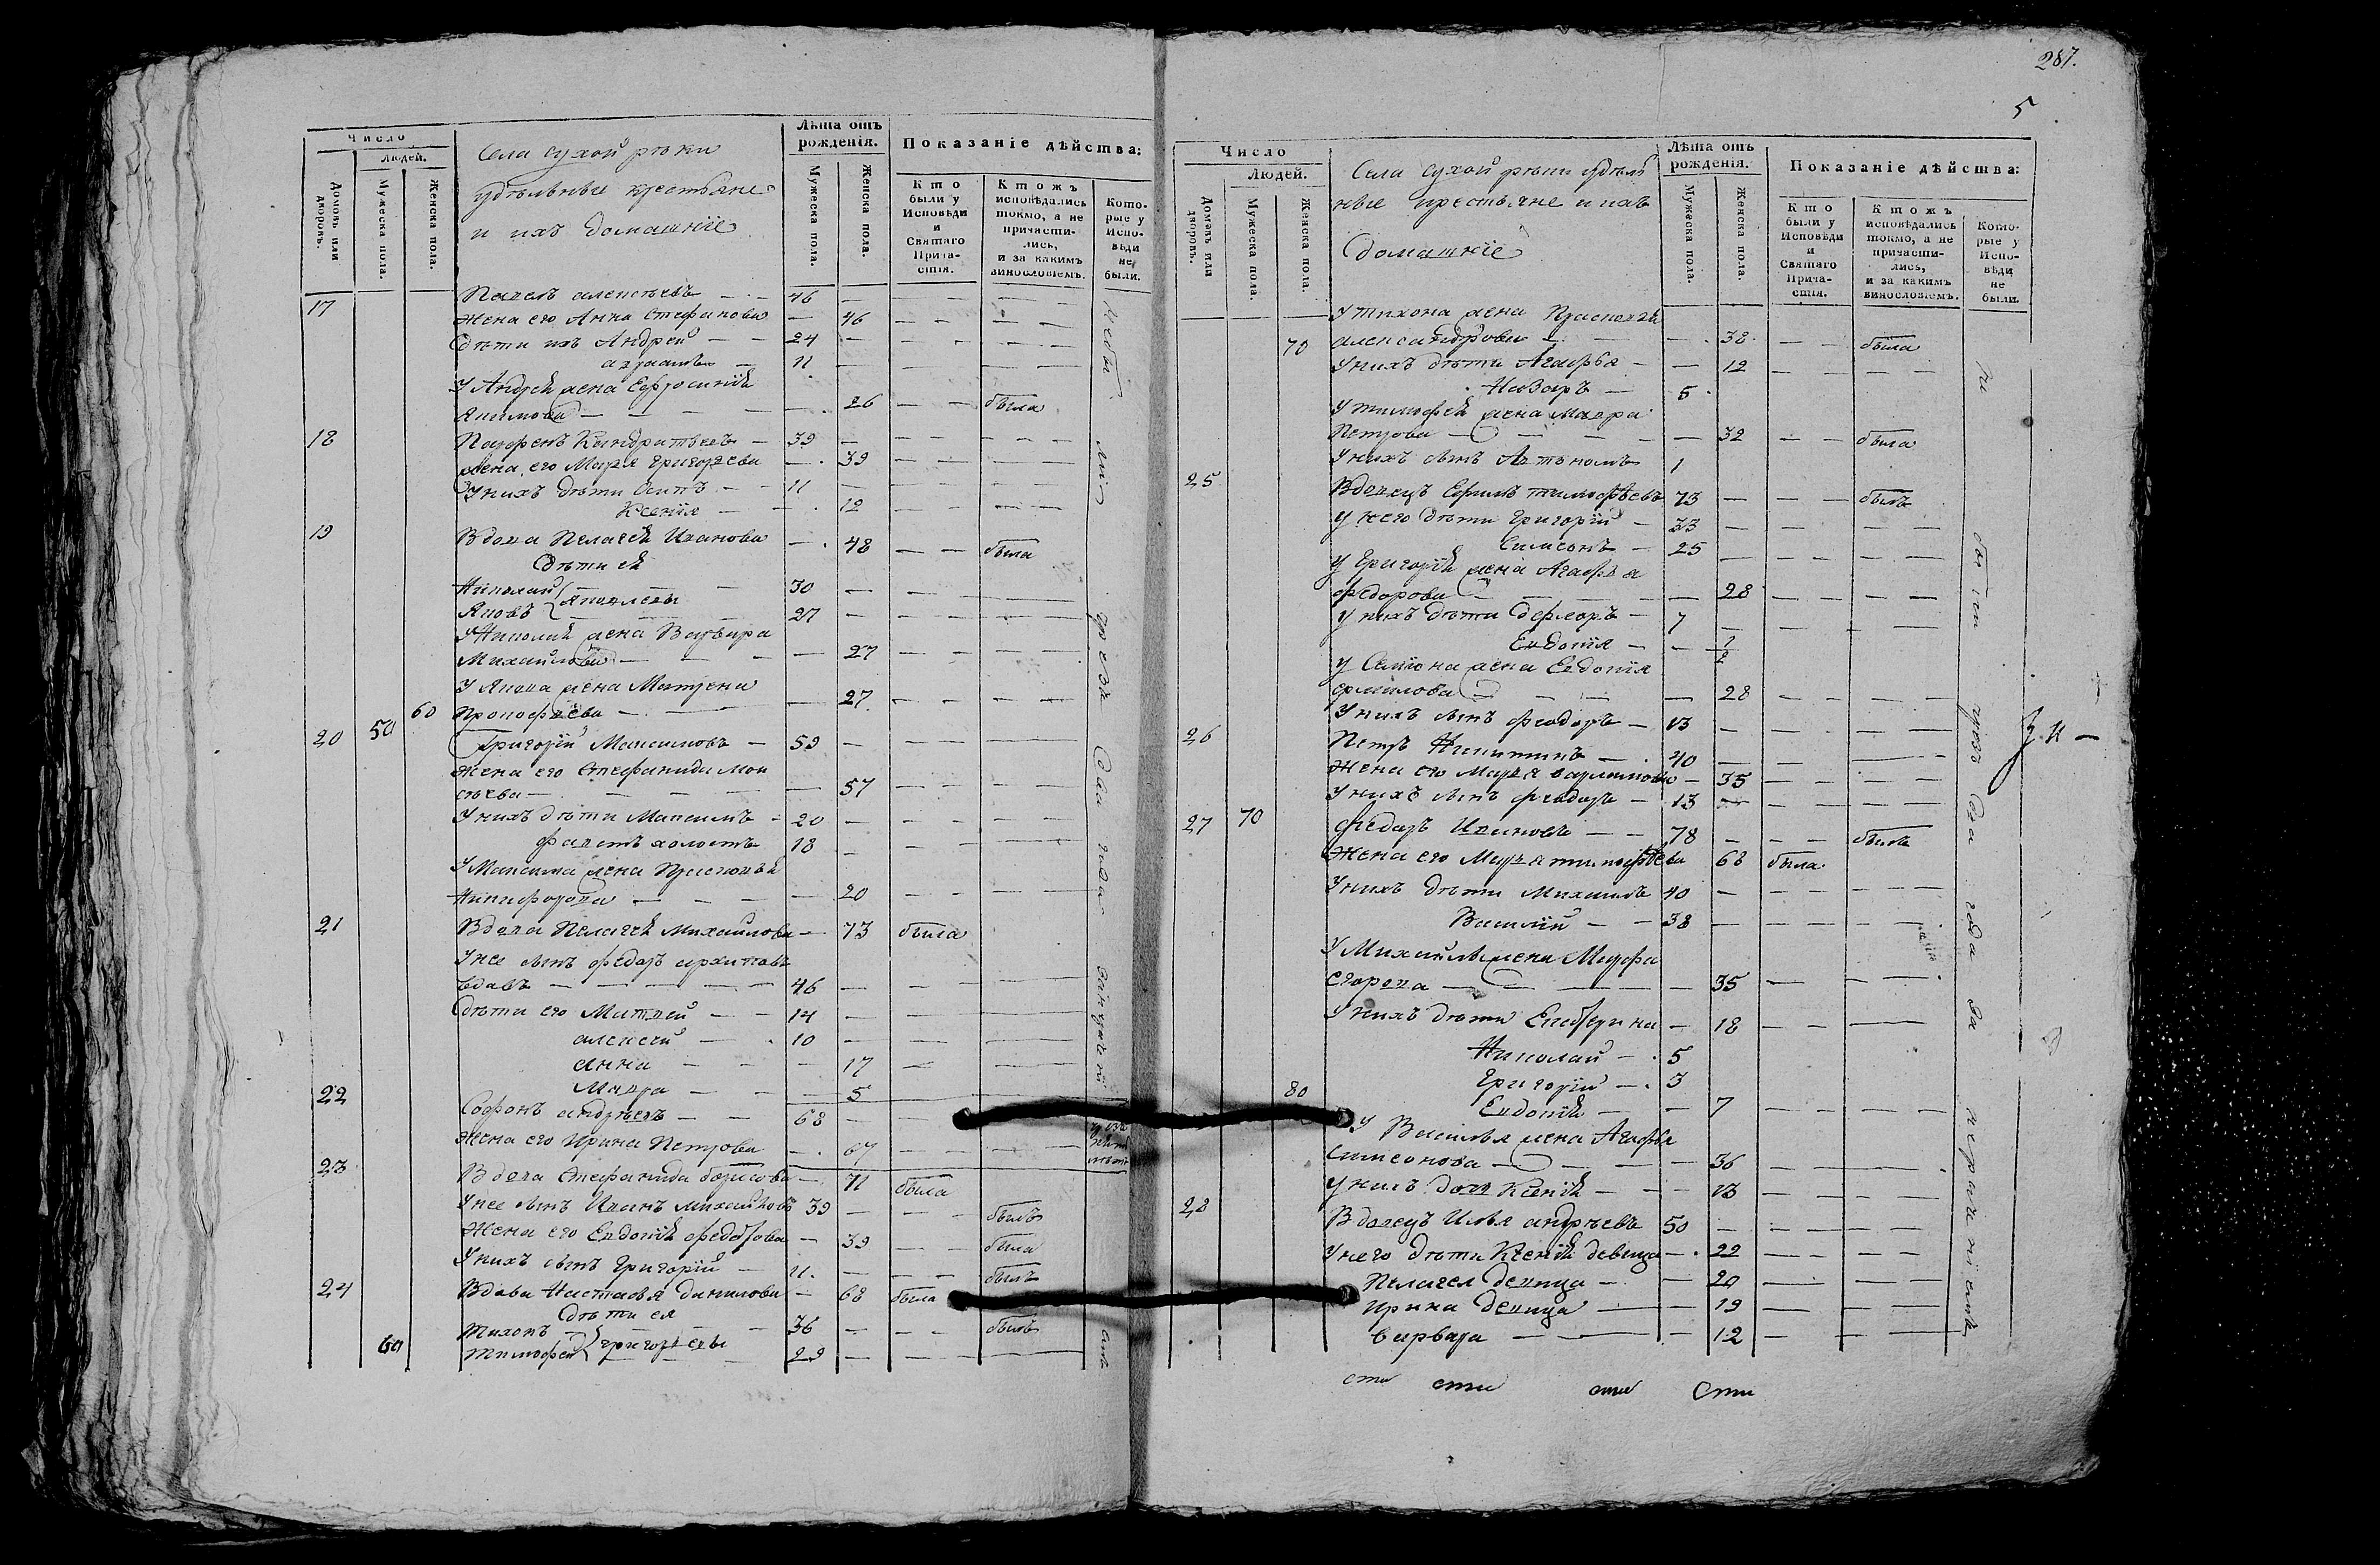 Число
Людей.
Домовъ или дворовъ.
Мужеска пола.
Женска пола.
Села сухой рѣки
удѣльные крестьяне
и ихъ домашніе
Лѣта отъ рожденія.
Мужеска пола.
Женска пола.
Показаніе дѣйства:
Кто были у Исповѣди и Святаго Прича-стія.
Ктожъ исповѣдались токмо, а не причасти-лись, и за какимъ винословіемъ.
Кото-рые у Испо-вѣди не были.
17 Павелъ алексѣевъ 46
Жена его Анна Стефанова 46
Дѣти ихъ Андрей 24
11
У Андрея жена Евфросинія
Якимова 26 была
18 Парфенъ Кондратьевъ 39
жена его Марья григорьева 39
У нихъ дѣти Осипъ 11
Ксенія 12
19 Вдова Пелагея Иванова 48 была
Дѣти ея
Николай 30
Яковъ Яковлевы 27
У Николая жена Варвара
Михайлова 27
У Якова жена Матрена
60 Прокофьева 27
20 50 Григорій Максимовъ 59
жена его Стефанида Мои
сѣева 57
У нихъ дѣти Максимъ 20
холостъ 18
У Максима жена Прасковья
Никифорова 20
21 Вдова Пелагея Михайлова 73 была
У нее сынъ федоръ архиповъ
вдовъ 46
Дѣти его Матвей 14
алексей 10
анна 17
Мавра 5
22 Софонъ андрѣевъ 68
жена его Ирина Петрова 67
23 Вдова Стефанида борисова 71 была
У нее сынъ Иванъ михайловъ 39 былъ
Жена его Евдокія федотова 39 была
У нихъ сынъ Григорій 11 былъ
24 Вдова Настасья данилова 68 была
Дѣти ея
Тихонъ 36 былъ
60 Тимофей григорьевы 29
287.
5
Число
Людей.
Домовъ или дворовъ.
Мужеска пола.
Женска пола.
Села сухой рѣки удѣль
ные крестьяне и ихъ
домашніе
Лѣта отъ рожденія.
Мужеска пола.
Женска пола.
Показаніе дѣйства:
Кто были у Исповѣди и Святаго Прича-стія.
Ктожъ исповѣдались токмо, а не причасти-лись, и за какимъ винословіемъ.
Кото-рые у Испо-вѣди не были.
У тихона жена Прасковья
70 александрова 38 была
У нихъ дѣти Агафья 12
Назаръ 5
У тимофея жена Мавра
Петрова 32 была
У нихъ сынъ Автономъ 1
25 Вдовецъ Ефимъ тимофѣевъ 73 былъ
у него дѣти Григорій 33
Симеонъ 25
У Григорія жена Агафья
федорова 28
у нихъ дѣти 7
Евдокія 1/2
у Симіона жена Евдокія
28
У нихъ сынъ феодоръ 13
26 Петръ Никитинъ 40
Жена его Марья варламова 35
У нихъ сынъ феодоръ 13
27 70 федоръ Ивановъ 78 былъ
Жена его Марья тимофѣева 68 была
У нихъ дѣти Михаилъ 40
Василій 38
У Михаила жена Марфа
егорова 35
У нихъ дѣти Екатерина 18
Николай 5
Григорій 3
80 Евдокія 7
У Василья жена Агафья
симеонова 36
У нихъ дочь Ксенія 13
28 Вдовецъ Илья андрѣевъ 50
У него дѣти Ксенія девица 22
Пелагея девица 20
Ирина девица 19
варвара 12